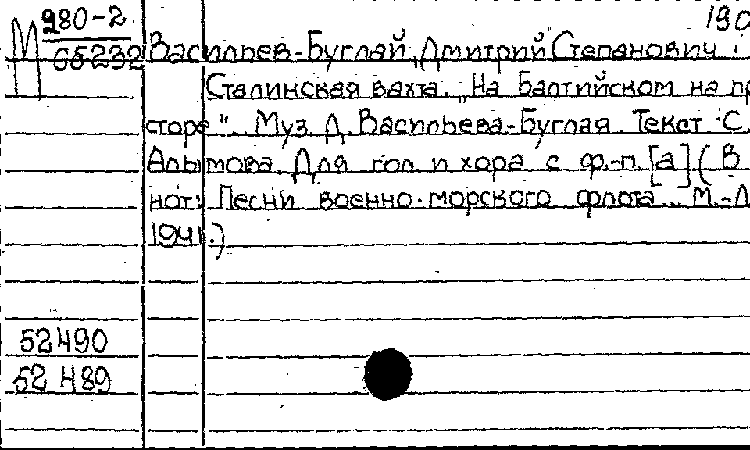 М 980-2 190
65232 Васильев-Буглай, Дмитрий Степанович.
Сталинская вахта. "На Балтийском на пр
сторе". Муз. Д. Васильева-Буглая. Текст С.
Алымова. Для гол. и хора с ф.-п. [а] (В
нот: Песни военно-морского флота. М.-Л
1941.)
52490
52489